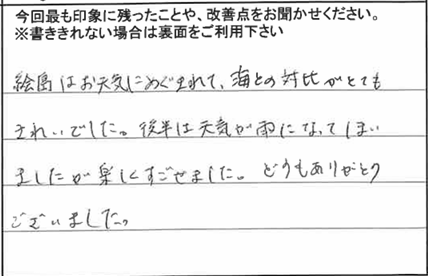 今回最も印象に残ったことや、改善点をお聞かせください。
※書ききれない場合は裏面をご利用下さい
絵島はお天気にめぐまれて、海との対比がとても
きれいでした。後半は天気が雨になってしまい
ましたが楽しくすごせました。どうもありがとう
ございました。